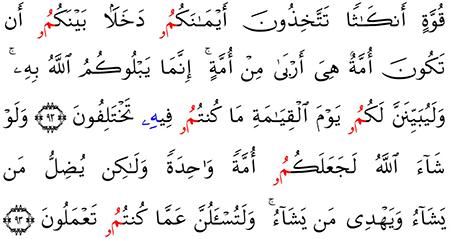 قُوَّةٍ أَنكَٰثًا تَتَّخِذُونَ أَيْمَٰنَكُمُۥ دَخَلَۢا بَيْنَكُمُۥ أَن
تَكُونَ أُمَّةٌ هِيَ أَرْبَىٰ مِنْ أُمَّةٍ ۚ إِنَّمَا يَبْلُوكُمُ اللَّهُ بِهِۦ ۚ
وَلَيُبَيِّنَنَّ لَكُمُۥ يَوْمَ الْقِيَٰمَةِ مَا كُنتُمُۥ فِيهِۦ تَخْتَلِفُونَ ﴿٩٢﴾ وَلَوْ
شَآءَ اللَّهُ لَجَعَلَكُمُۥٓ أُمَّةً وَٰحِدَةً وَلَٰكِن يُضِلُّ مَن
يَشَآءُ وَيَهْدِى مَن يَشَآءُ ۚ وَلَتُسْـَٔلُنَّ عَمَّا كُنتُمُۥ تَعْمَلُونَ ﴿٩٣﴾